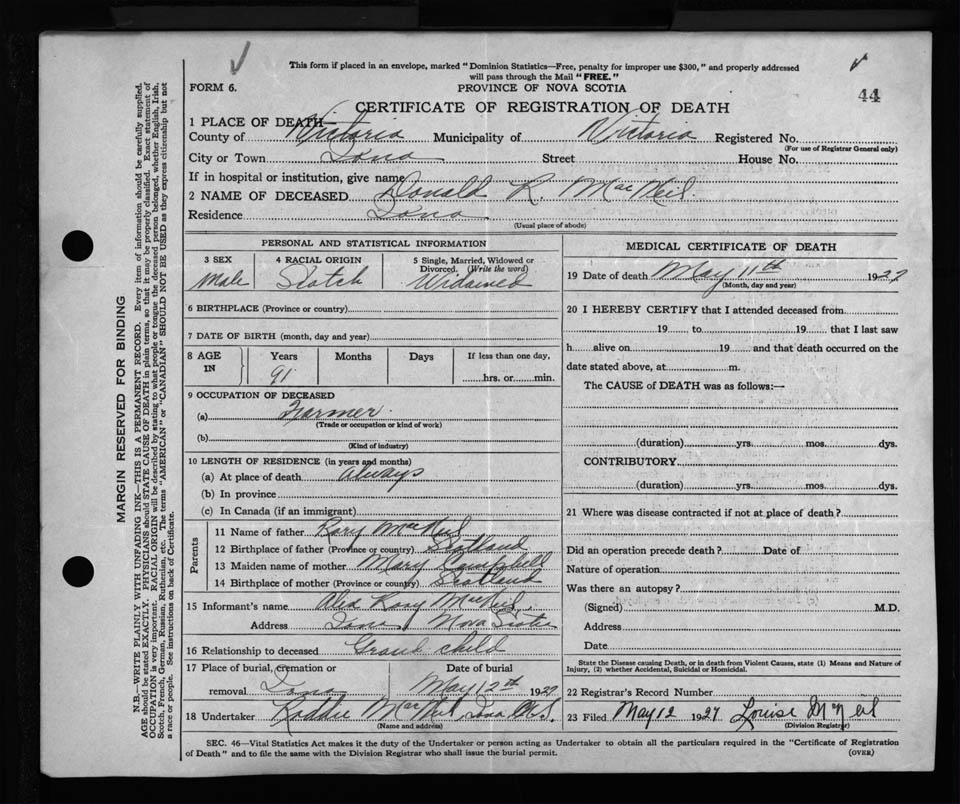 This form if placed in an envelope, marked "Dominion Statistics—Free, penalty for improper use $300," and properly addressed
will pass through the Mail "FREE."
FORM 6.
PROVINCE OF NOVA SCOTIA
44
CERTIFICATE OF REGISTRATION OF DEATH
1 PLACE OF DEATH—
County of Victoria Municipality of Victoria Registered No.
(For use of Registrar General only)
City or Town Iona Street House No.
If in hospital or institution, give name
2 NAME OF DECEASED Donald R. MacNeil
Residence Iona
(Usual place of abode)
PERSONAL AND STATISTICAL INFORMATION
3 SEX 4 RACIAL ORIGIN 5 Single, Married, Widowed or Divorced. (Write the word)
Male Scotch Widowed
6 BIRTHPLACE (Province or country)
7 DATE OF BIRTH (month, day and year)
8 AGE IN Years Months Days If less than one day,
91 hrs. or min.
9 OCCUPATION OF DECEASED
(a) Farmer
(Trade or occupation or kind of work)
(b)
(Kind of industry)
10 LENGTH OF RESIDENCE (in years and months)
(a) At place of death always
(b) In province
(c) In Canada (if an immigrant)
Parents
11 Name of father Rory MacNeil
12 Birthplace of father (Province or country) Scotland
13 Maiden name of mother Mary Campbell
14 Birthplace of mother (Province or country) Scotland
15 Informant's name Alex Rory MacNeil
Address Iona Nova Scotia
16 Relationship to deceased Grand child
17 Place of burial, cremation or Date of burial
removal Iona May 12th 1927
18 Undertaker MacNeil Iona N.S.
(Name and address)
MEDICAL CERTIFICATE OF DEATH
19 Date of death May 11th 1927
(Month, day and year)
20 I HEREBY CERTIFY that I attended deceased from
19 to 19 that I last saw
h alive on 19 and that death occurred on the
date stated above, at m.
The CAUSE of DEATH was as follows:—
(duration) yrs. mos. dys.
CONTRIBUTORY
(duration) yrs. mos. dys.
21 Where was disease contracted if not at place of death?
Did an operation precede death? Date of
Nature of operation
Was there an autopsy?
(Signed) M.D.
Address
Date
State the Disease causing Death, or in death from Violent Causes, state (1) Means and Nature of
Injury, (2) whether Accidental, Suicidal or Homicidal.
22 Registrar's Record Number
23 Filed May 12 1927 Louise McNeil
(Division Registrar)
SEC. 46—Vital Statistics Act makes it the duty of the Undertaker or person acting as Undertaker to obtain all the particulars required in the "Certificate of Registration
of Death" and to file the same with the Division Registrar who shall issue the burial permit.
(OVER)
MARGIN RESERVED FOR BINDING
N.B.—WRITE PLAINLY WITH UNFADING INK—THIS IS A PERMANENT RECORD. Every item of information should be carefully supplied.
AGE should be stated EXACTLY. PHYSICIANS should STATE CAUSE OF DEATH in plain terms, so that it may be properly classified. Exact statement of
OCCUPATION is very important. RACIAL ORIGIN will be described by stating to what people or tongue the deceased person belonged, whether English, Irish,
Scotch, French, German, Russian, Ruthenian, etc. The terms "AMERICAN" or "CANADIAN" SHOULD NOT BE USED as they express citizenship but not
a race or people. See instructions on back of Certificate.